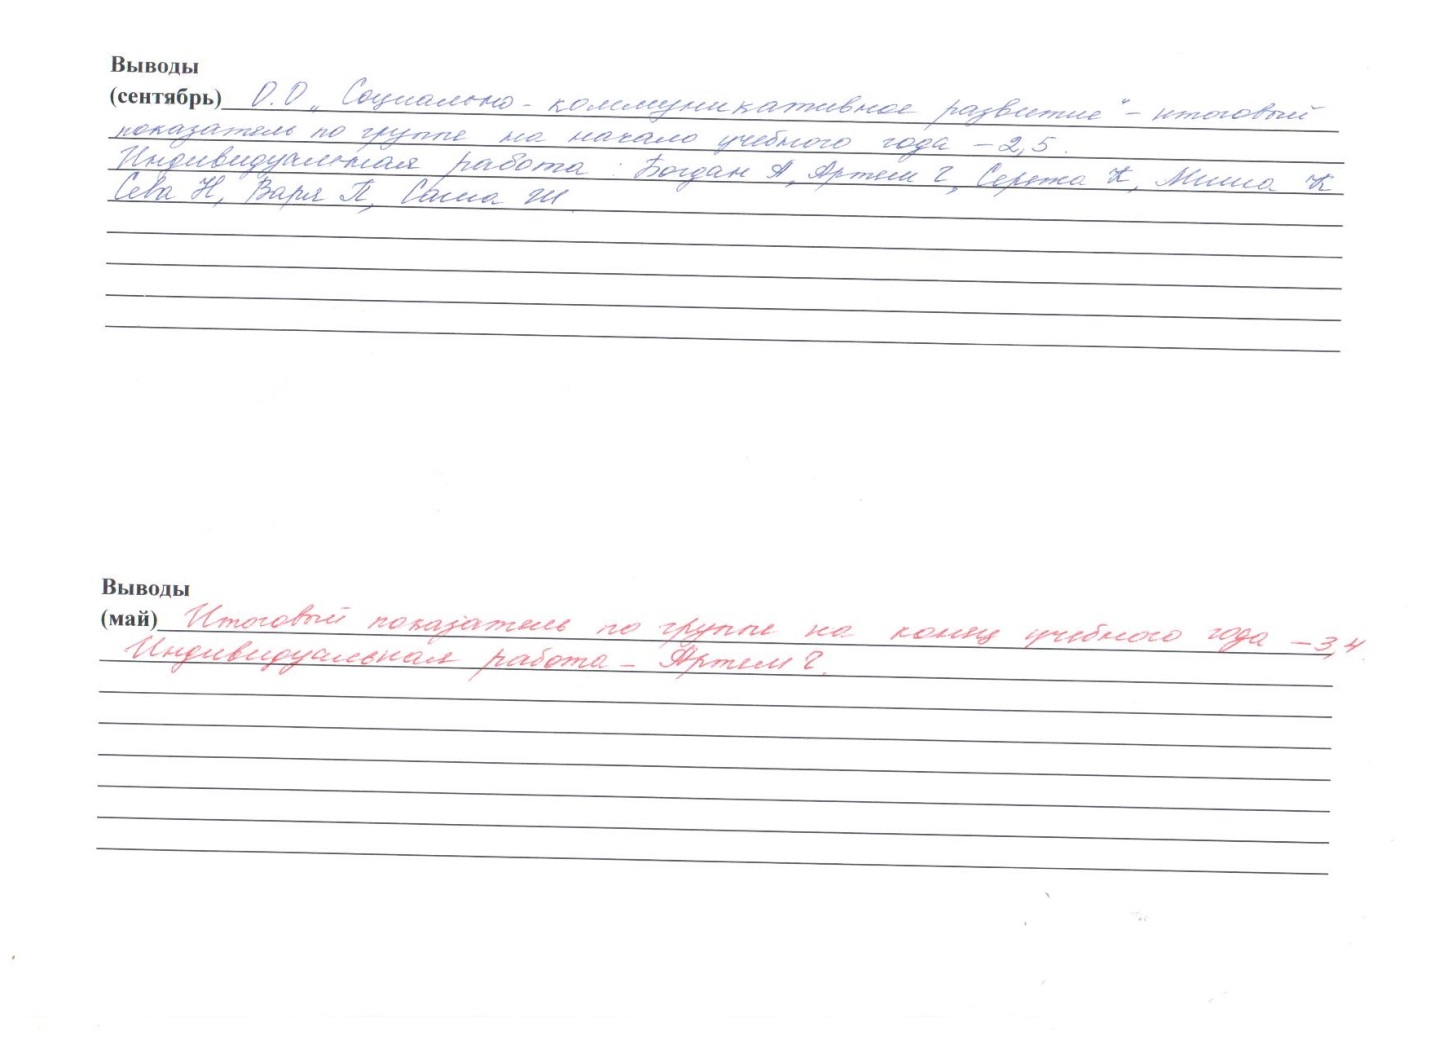 Выводы
(сентябрь) О.О „Социально - коммуникативное развитие" - итоговый
показатель по группе на начало учебного года - 2,5.
Индивидуальная работа: Богдан А, Артем Г, Сережа К, Миша К
Сева Н, Варя П, Саша Ш
Выводы
(май) Итоговый показатель по группе на конец учебного года - 3,4.
Индивидуальная работа - Артем Г.